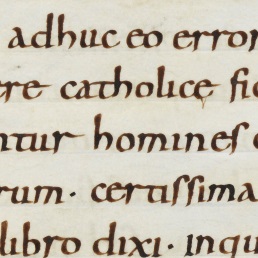 adhuc eo error
ere catholicę fid
ntur homines
rum · certissima
libro dixi · inqu